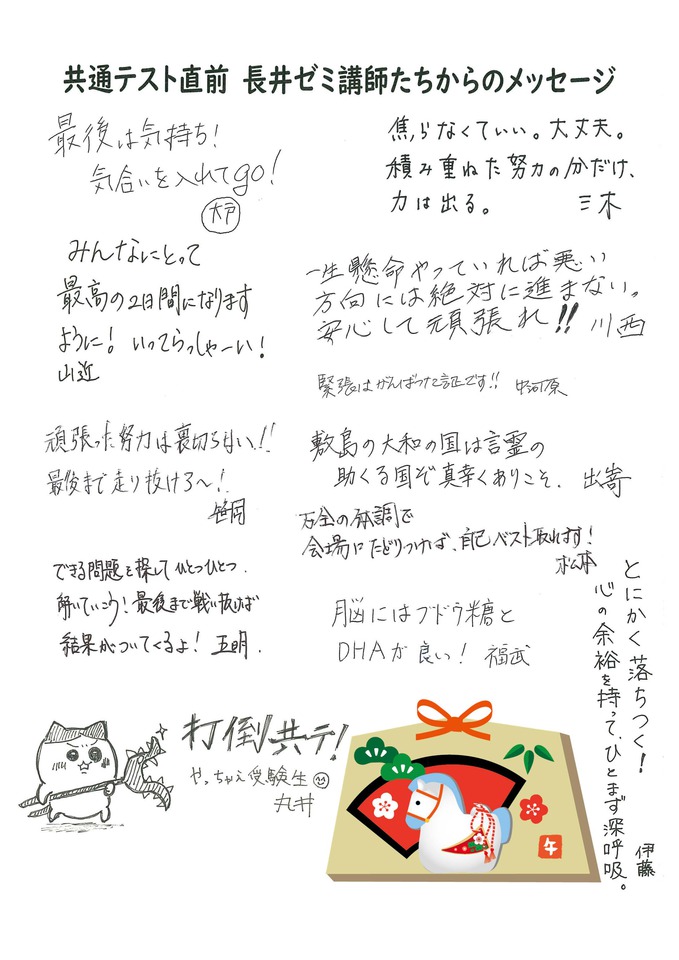 共通テスト直前 長井ゼミ講師たちからのメッセージ
最後は気持ち!
気合いを入れてgo!
大戸
焦らなくていい。大丈夫。
積み重ねた努力の分だけ、
力は出る。 三木
みんなにとって
最高の2日間になります
ように! いってらっしゃーい!
山近
一生懸命やっていれば悪い
方向には絶対に進まない。
安心して頑張れ!! 川西
緊張はがんばった証です!! 中河原
頑張った努力は裏切らない!!
最後まで走り抜けろ〜!
笹岡
敷島の大和の国は言霊の
助くる国ぞ真幸くありこそ. 出嵜
万全の体調で
会場にたどりつければ、自己ベスト取れます!
松本
できる問題を探してひとつひとつ
解いていこう! 最後まで戦い抜けば
結果がついてくるよ! 五明.
脳にはブドウ糖と
DHAが良い! 福武
とにかく落ちつく!
心の余裕を持って、ひとまず深呼吸。
伊藤
打倒共テ!
やっちゃえ受験生
丸井
午